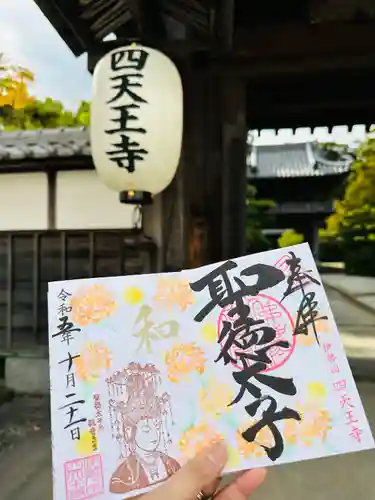 四天王寺
奉拝
聖徳太子
和
令和五年十月二十一日
四天王寺